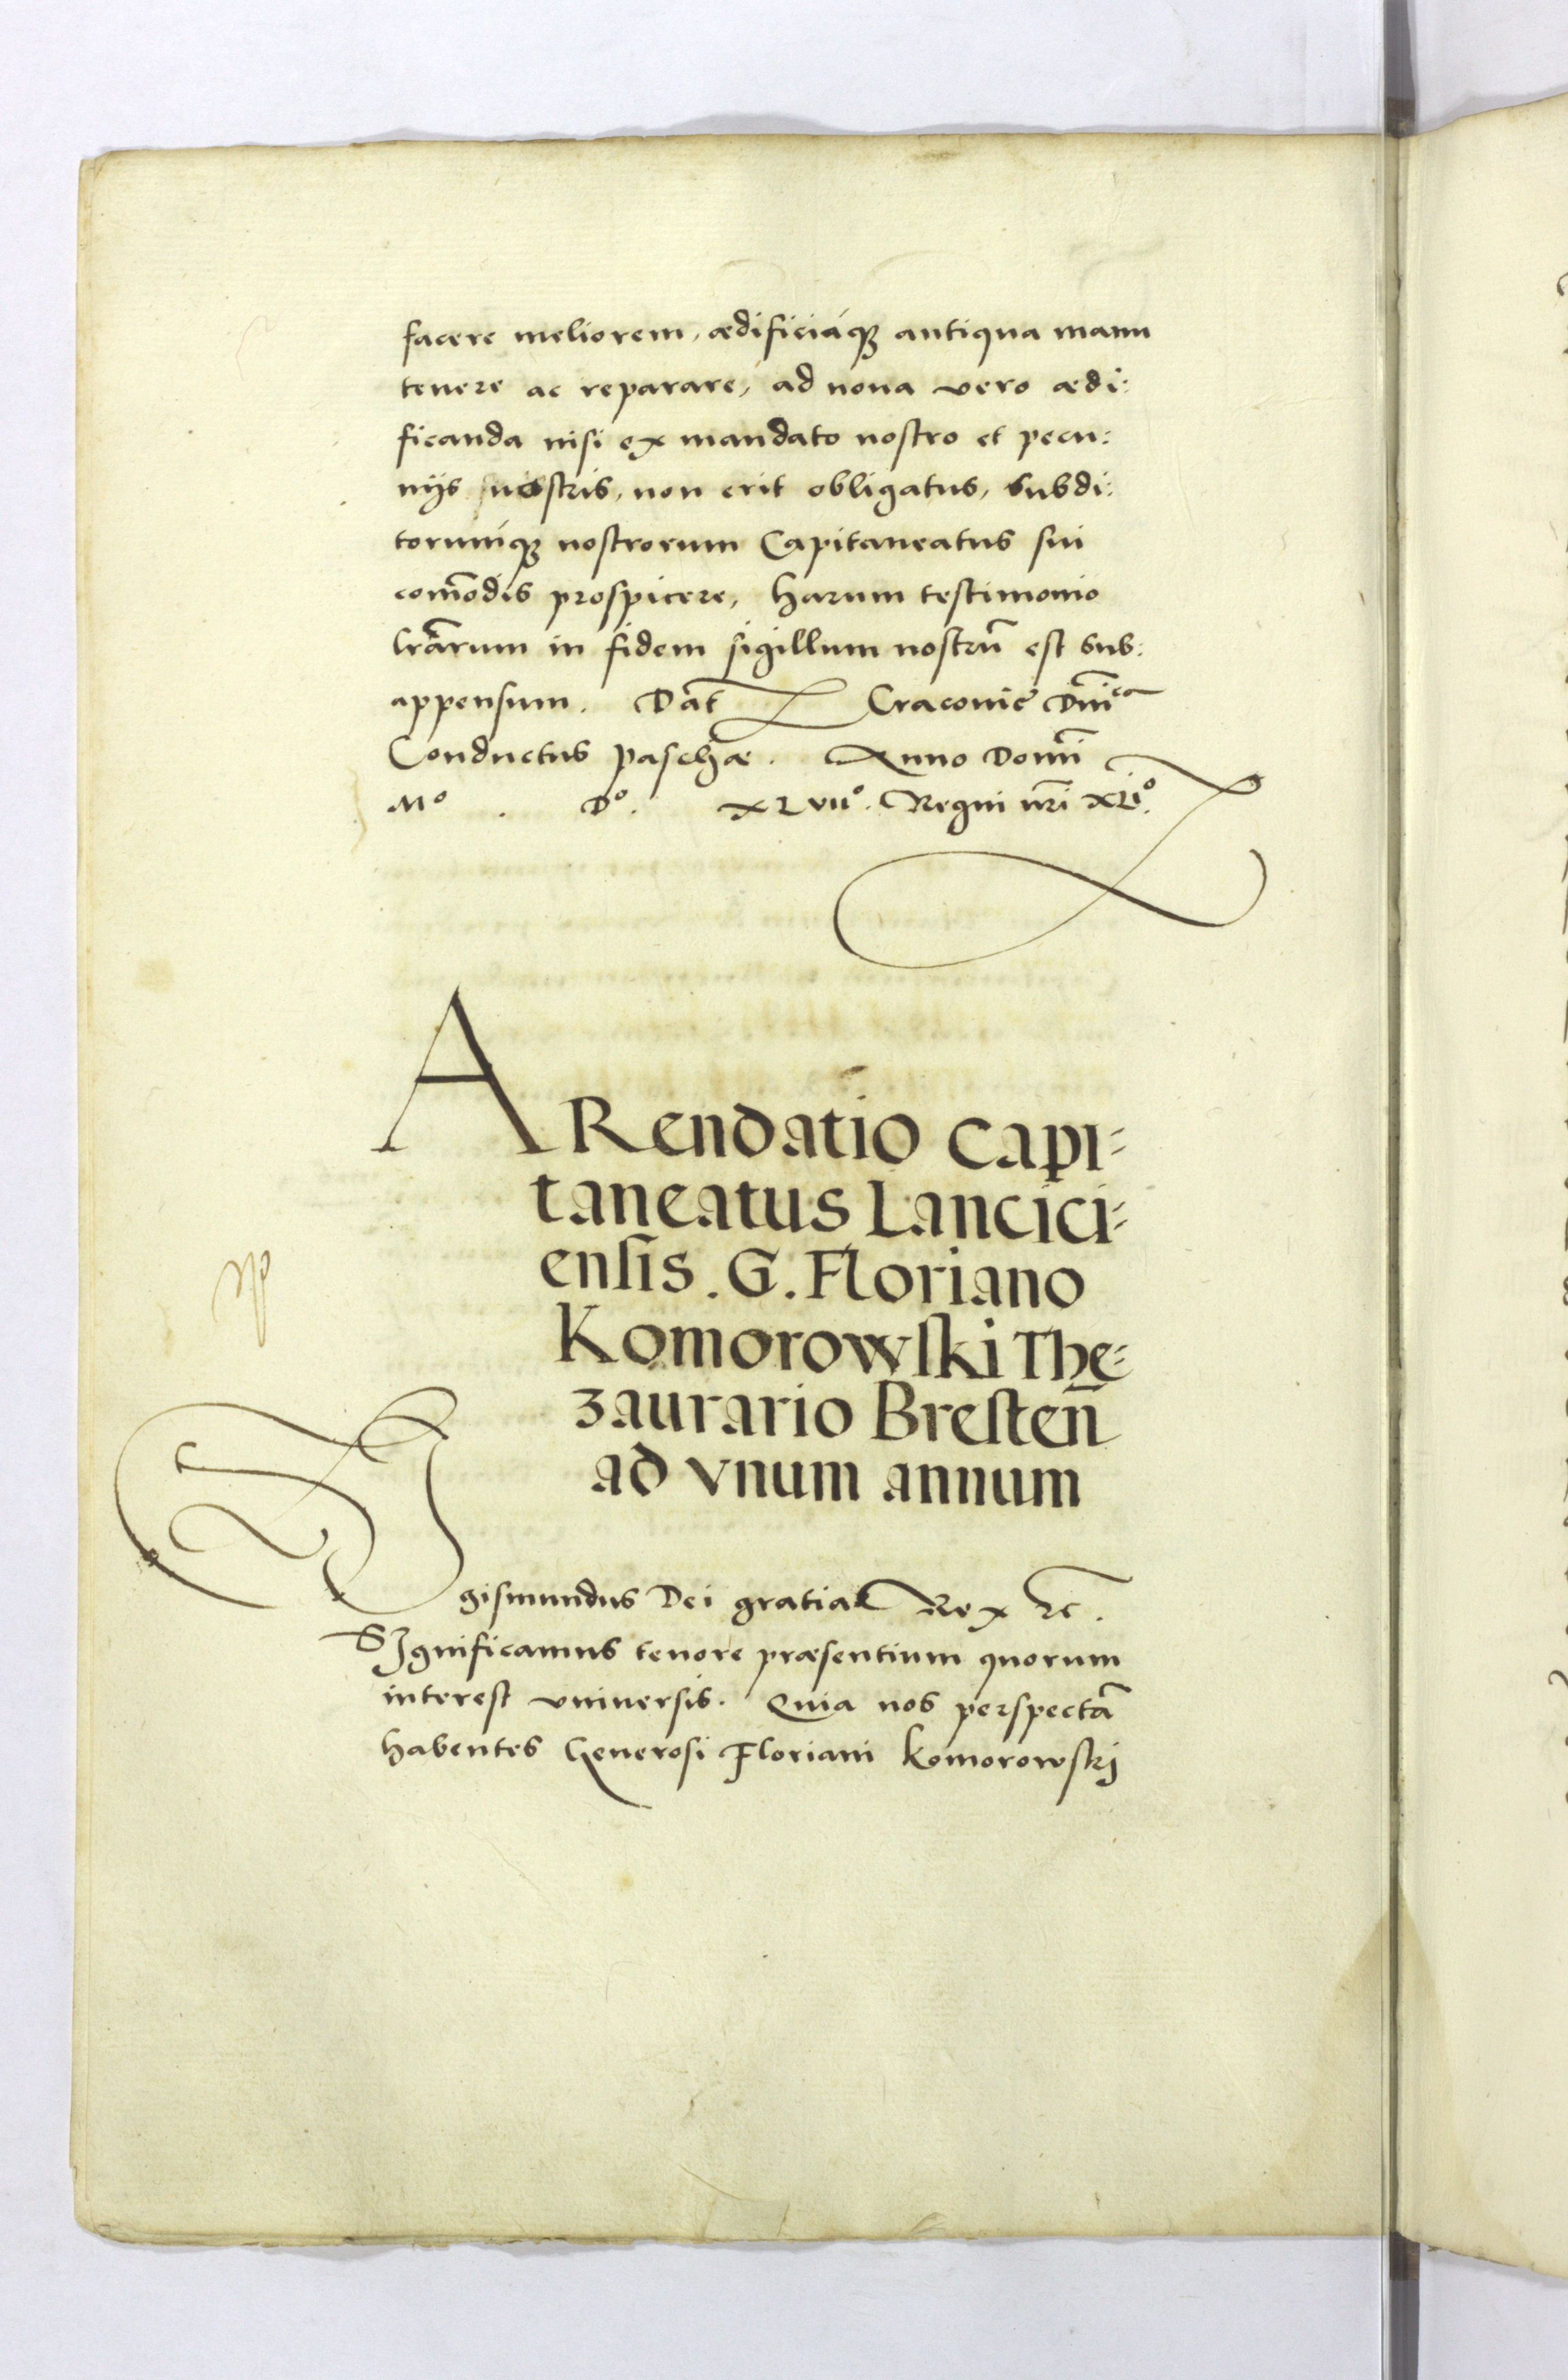 facere meliorem, ædificiáq₃ antiqua manu
tenere ac reparare, ad noua vero ædi:
ficanda nisi ex mandato nostro et pecu:
nijs nostris, non erit obligatus, subdi:
torumq₃ nostrorum Capitaneatus sui
com̄odis prospicere, harum testimonio
lr̄arum in fidem sigillum nostrū est sub:
appensum. Dat̄ Cracouie Dn̄icᵃ
Conductus paschæ. Anno Domi̅
Mº. Dº. XLVIIº. Regni nr̄i XLiº.
ARendatio Capi⸗
taneatus Lancici⸗
ensis. G. Floriano
Komorowski The⸗
zaurario Bresten̄
ad vnum annum
Sigismundus Dei gratia Rex ꝛc̄.
SIgnificamus tenore præsentium quorum
interest vniuersis. Quia nos perspectā
habentes Generosi Floriani Komorowskj